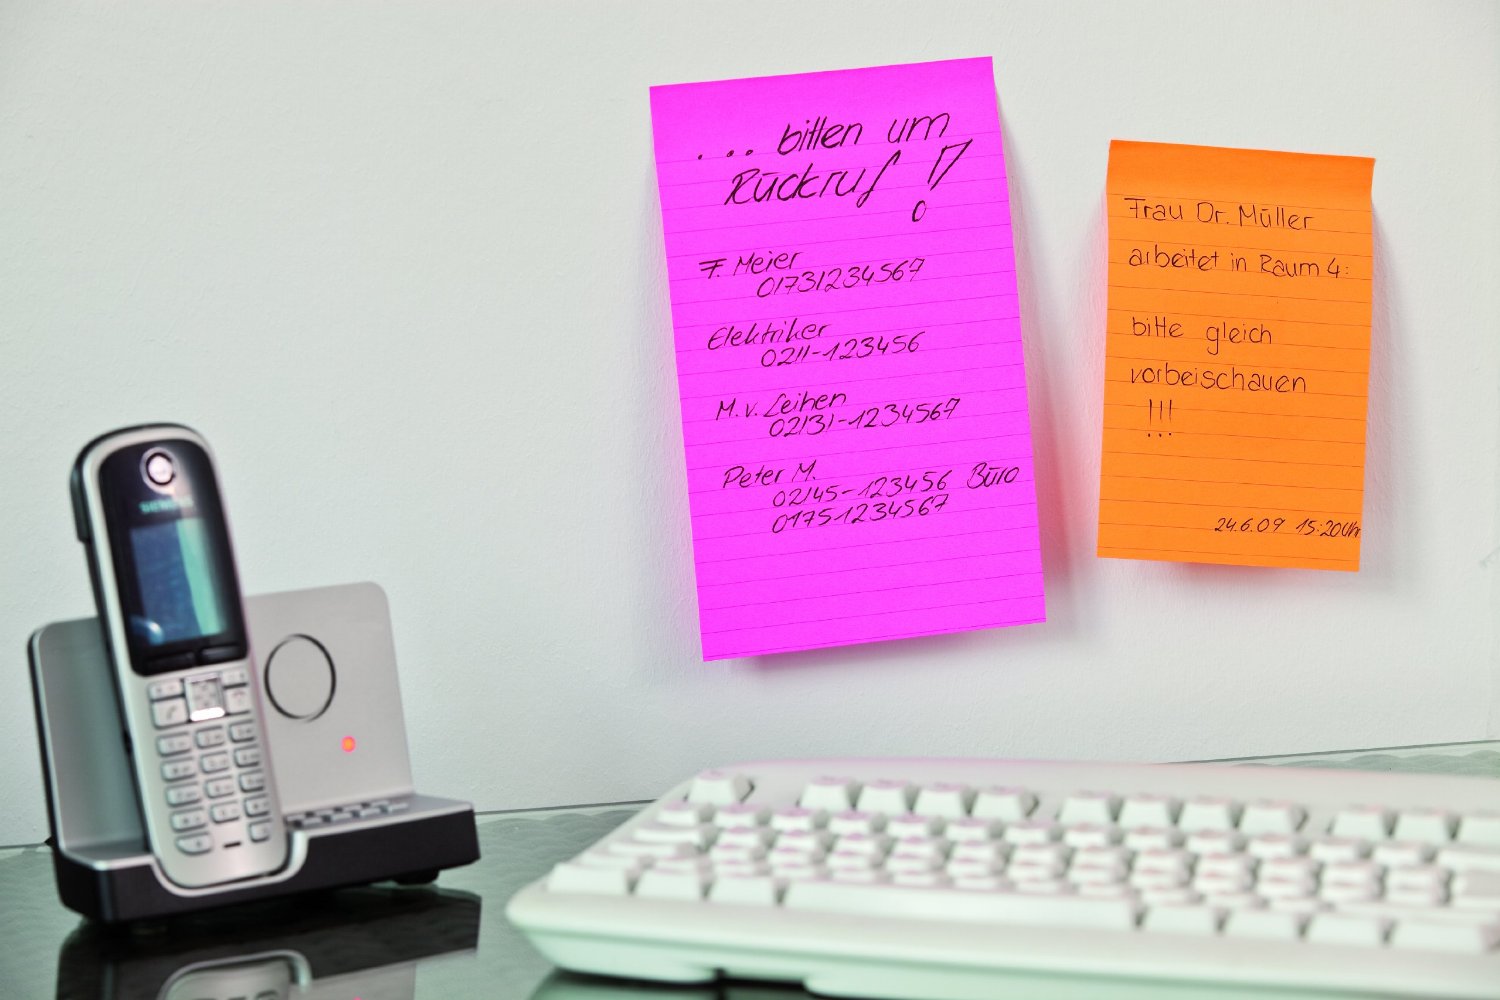 ... bitten um
Rückruf !
F. Meier
01731234567
Elektriker
0211-123456
M. v. Leihen
02131-1234567
Peter M.
02145-123456 Büro
01751234567
Frau Dr. Müller
arbeitet in Raum 4:
bitte gleich
vorbeischauen
!!!
24.6.09 15:20Uhr
SIEMENS